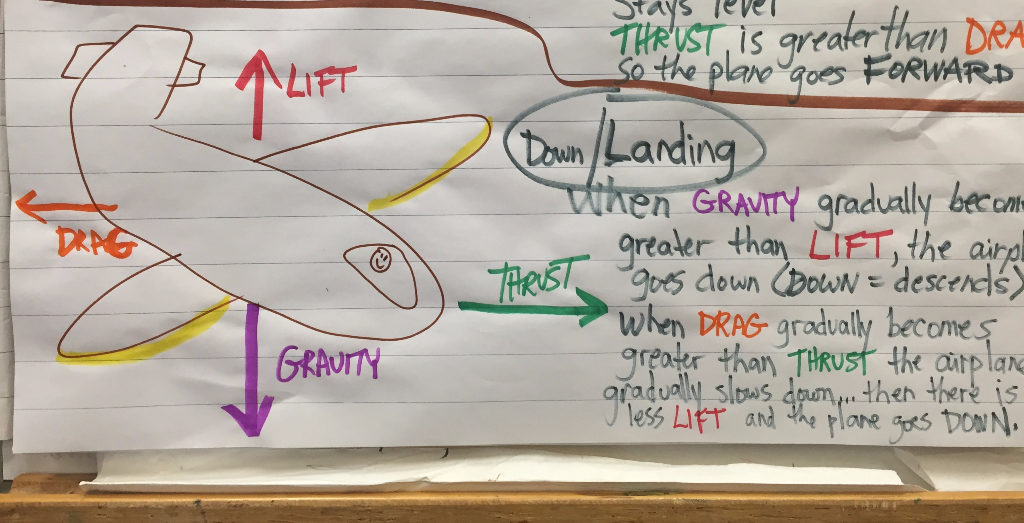 Stays level
THRUST is greater than DRA
so the plane goes FORWARD
LIFT
Down/Landing
When GRAVITY gradually becom
greater than LIFT, the airpl
goes down (DOWN = descends)
DRAG
THRUST
When DRAG gradually becomes
greater than THRUST the airplane
gradually slows down... then there is
less LIFT and the plane goes DOWN.
GRAVITY